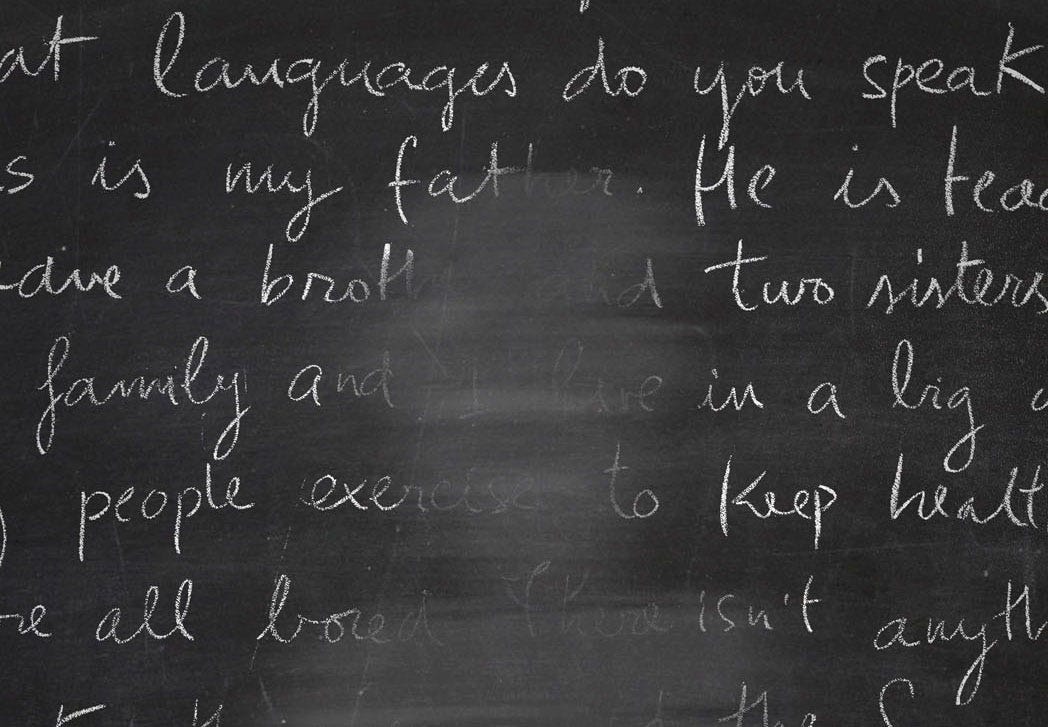 at languages do you speak
s is my father. He is teac
ave a broth and two sisters
family and I live in a big
people exercise to keep healt
re all bored There isn't anyth
the